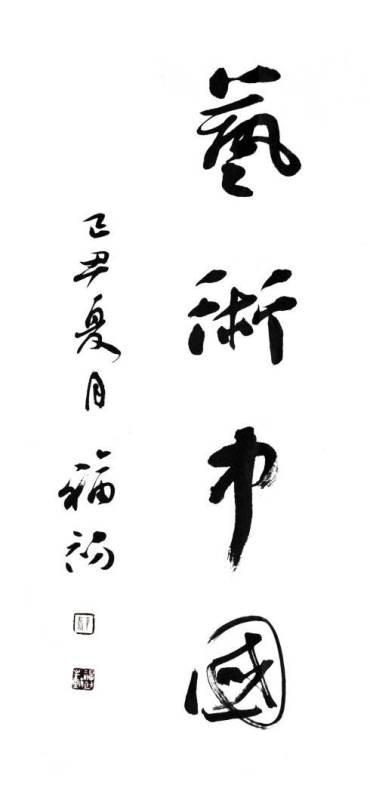 藝術中國
己丑夏月